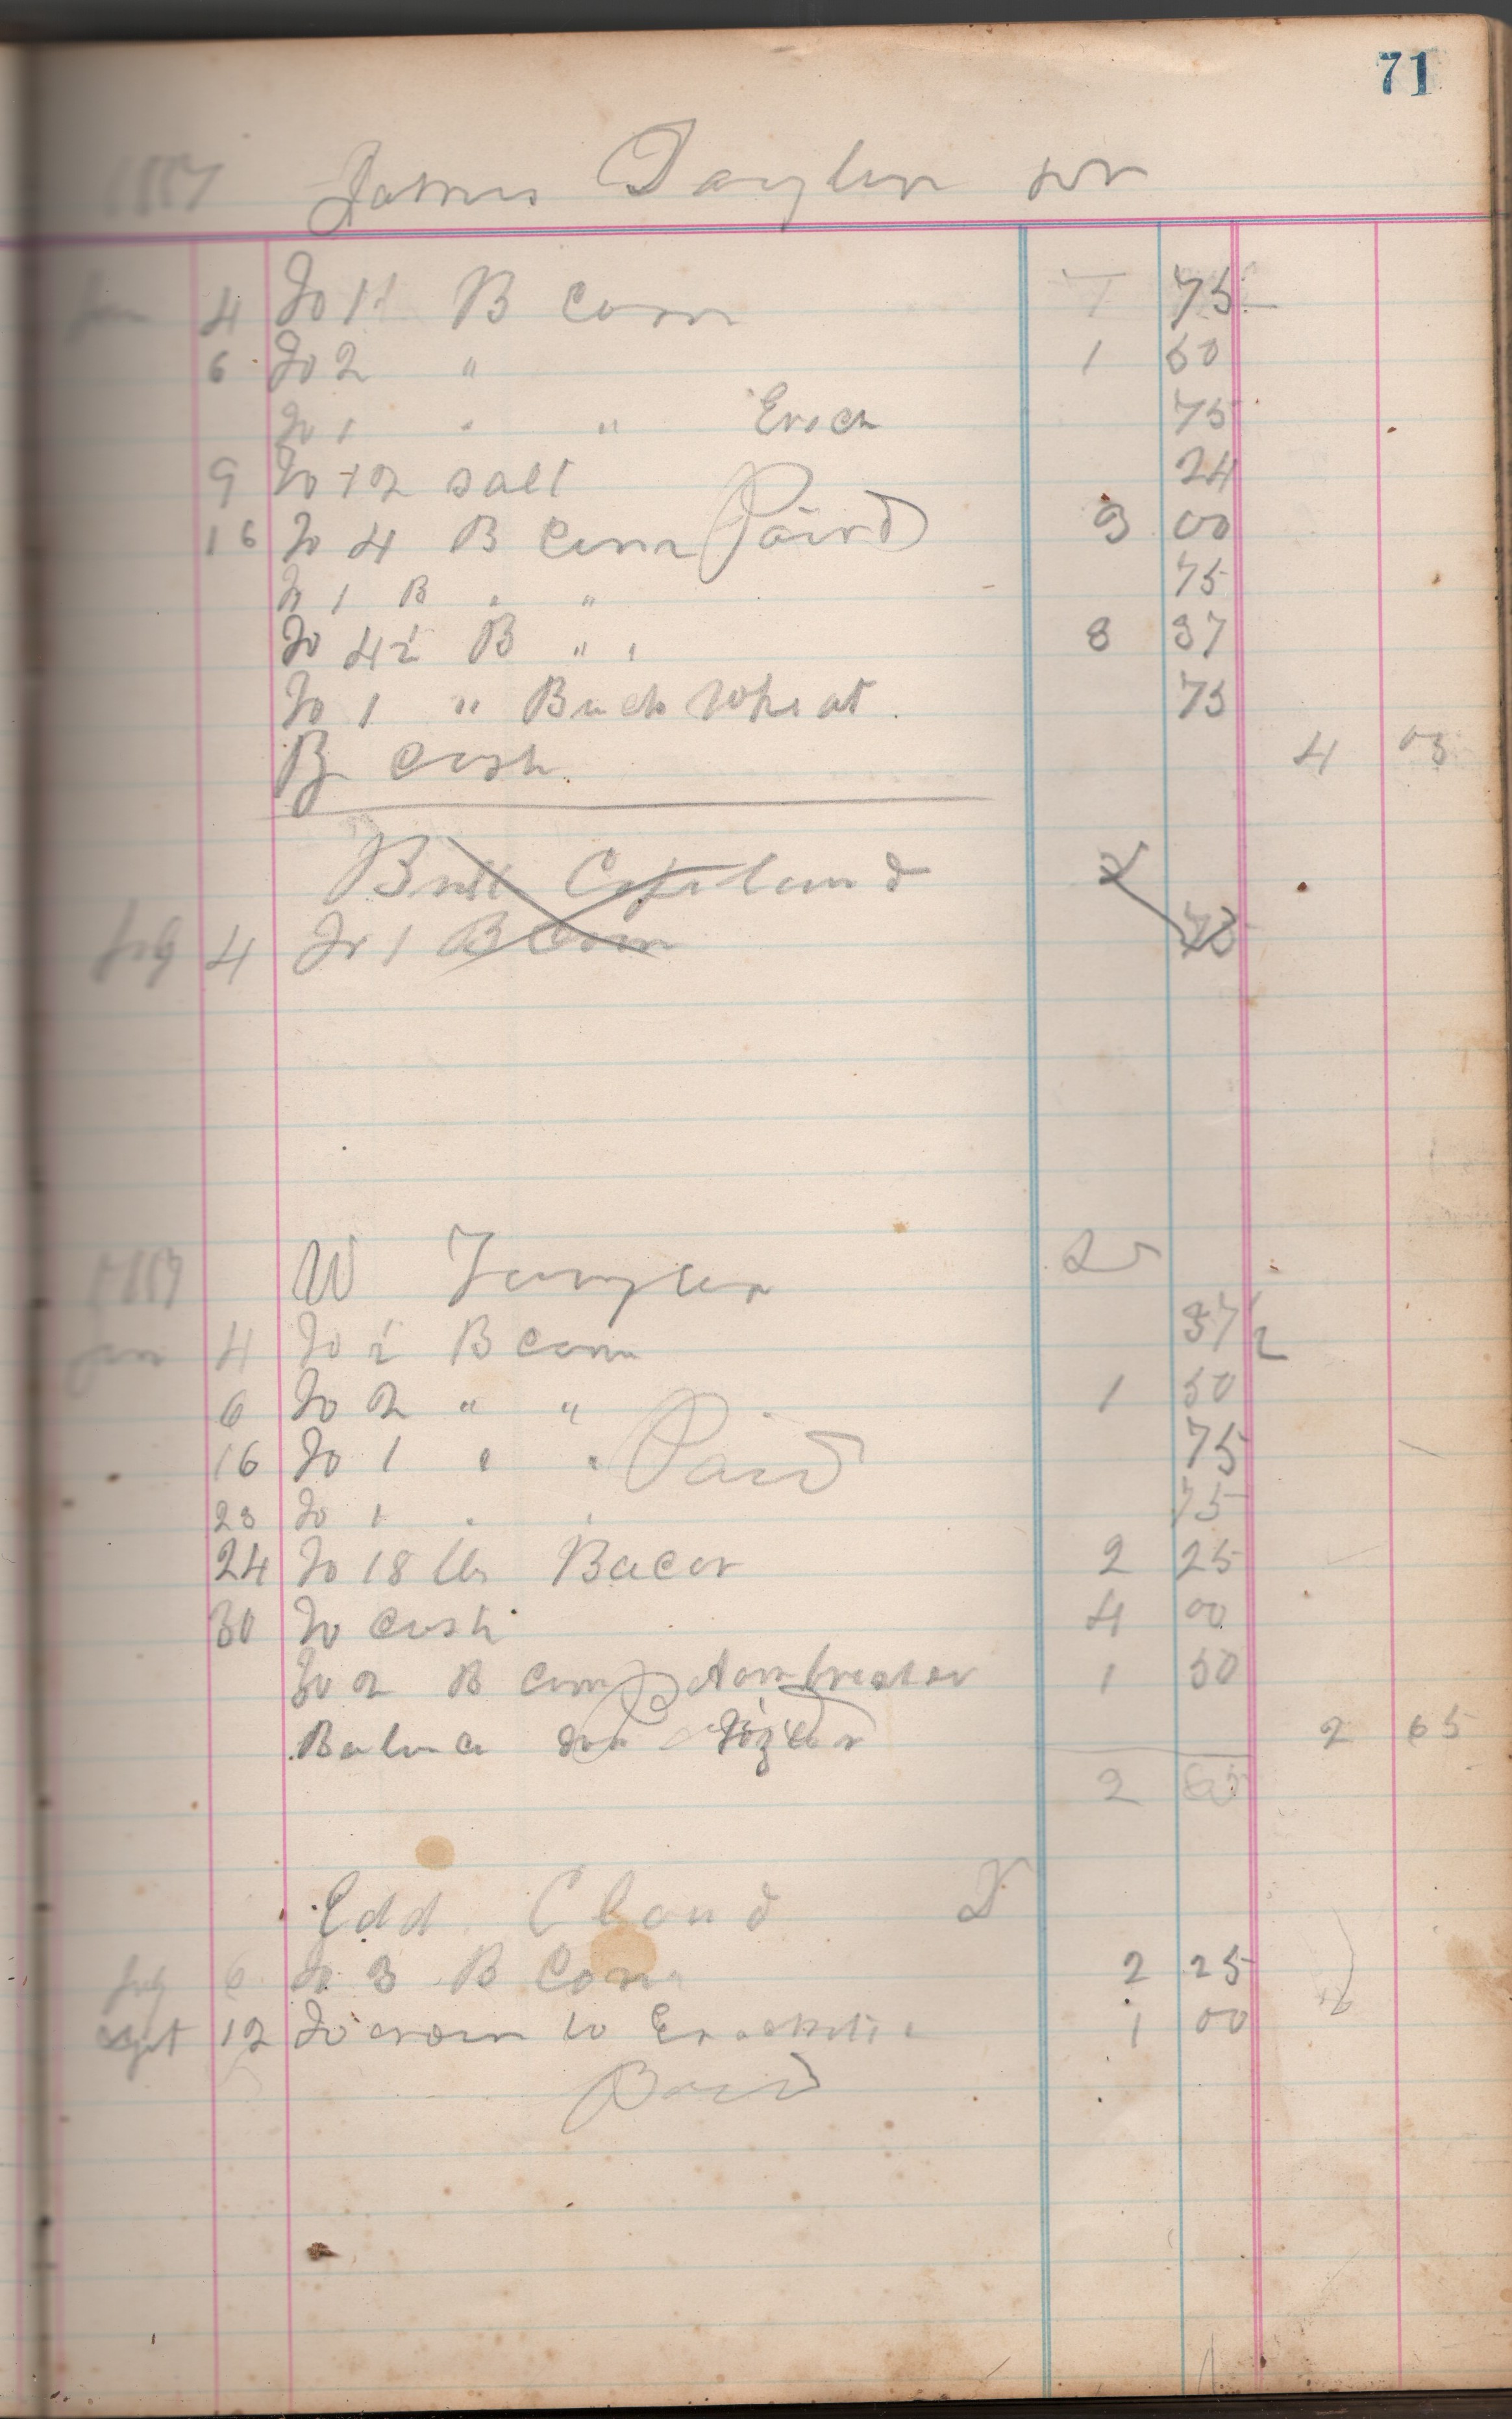 71
James Taylor
4 To 1 B Corn 75
6 To 2 " 1 50
To 1 " " 75
9 To 12 salt 24
16 To 4 B Corn Paid 3 00
To 1 B " " 75
To 4½ B " " 3 37
To 1 " Buck Wheat 75
By Cash 4 03
Bill Copeland
4 To 1 B Corn 75
W Taylor
Jan 4 To ½ B Corn 37½
6 To 2 " " 1 50
16 To 1 " " Paid 75
23 To 1 " " 75
24 To 18 lbs Bacon 2 25
30 To Cash 4 00
To 2 B Corn 1 50
Balance 2 65
2 65
Edd Cloud
6 To 3 B Corn 2 25
Sept 12 To 1 00
Paid